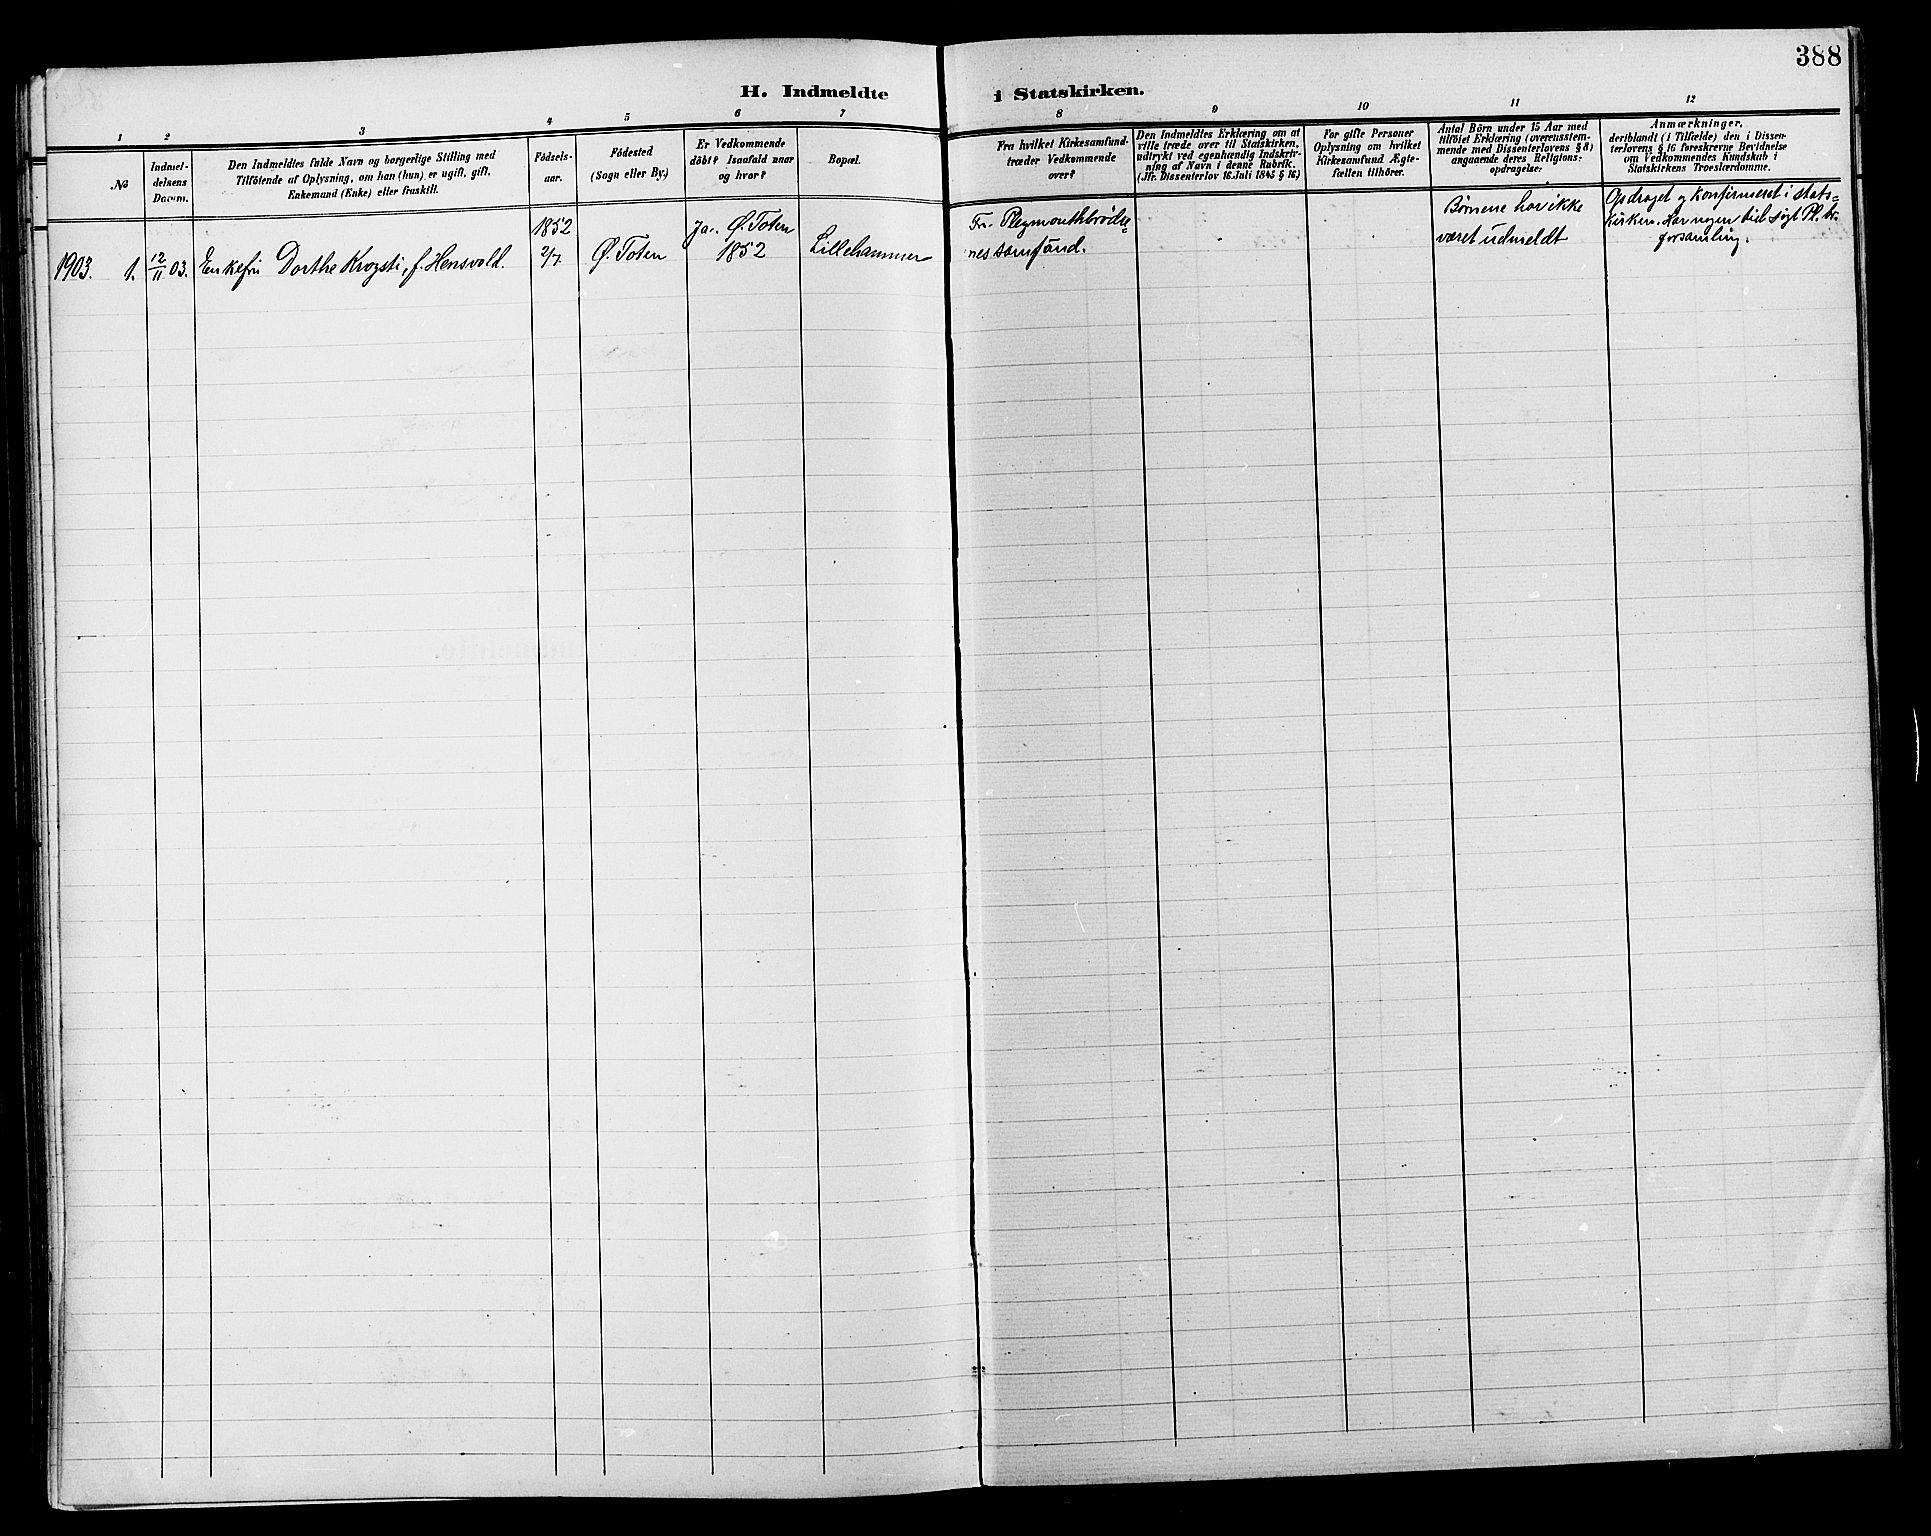 388
H. Indmeldte i Statskirken.
1 2 3 4 5 6 7 8 9 10 11 12
No
Indmel-
delsens
Datum.
Den Indmeldtes fulde Navn og borgerlige Stilling med
Tilföiende af Oplysning, om han (hun) er ugift, gift,
Enkemand (Enke) eller fraskilt.
Födsels-
aar.
Födested
(Sogn eller By.)
Er Vedkommende
döbt? Isaafald naar
og hvor?
Bopæl.
Fra hvilket Kirkesamfund
træder Vedkommende
over?
Den Indmeldtes Erklæring om at
ville træde over til Statskirken,
udtrykt ved egenhændig Indskriv-
ning af Navn i denne Rubrik.
(Jfr. Dissenterlov 16. Juli 1845 § 16)
For gifte Personer
Oplysning om hvilket
Kirkesamfund Ægte-
fællen tilhörer.
Antal Börn under 15 Aar med
tilföiet Erklæring (overensstem-
mende med Dissenterlovens § 8)
angaaende deres Religions-
opdragelse:
Anmærkninger,
deriblandt (i Tilfælde) den i Dissen-
terlovens § 16 foreskrevne Bevidnelse
om Vedkommendes Kundskab i
Statskirkens Troeslærdomme.
1903. 1.
12/11 03.
Enkefru Dorthe Krogsti, f. Hensvold.
1852
2/7
Ø. Toten
Ja. Ø. Toten
1852
Lillehammer
Fr. Pleymouthbrødre-
nes samfund.
Børnene har ikke
været udmeldt
Opdraget og konfirmeret i Stats-
kirken. Har nogen tid søgt Pl. br.
forsamling.